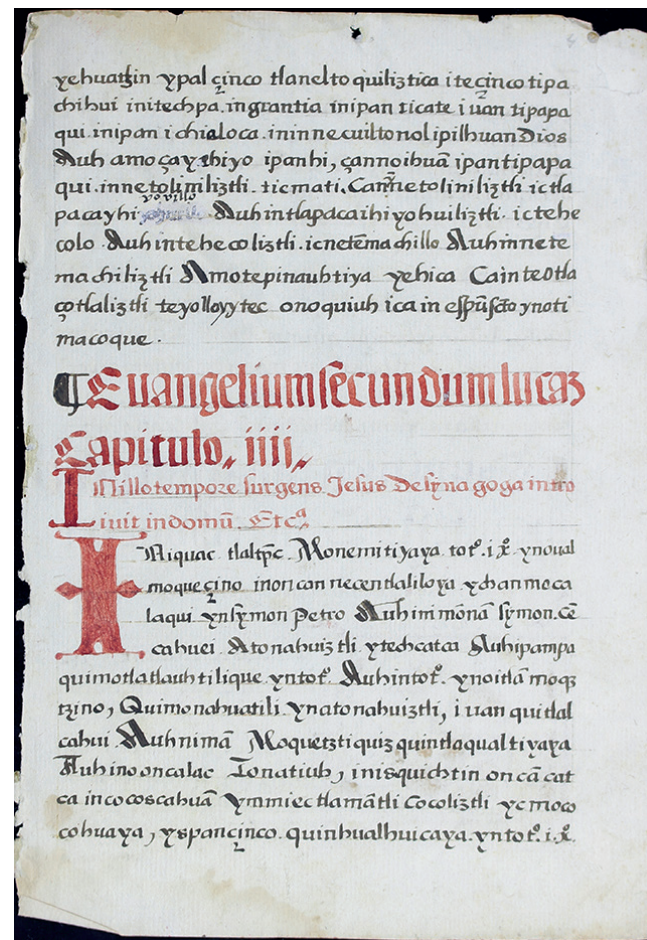 yehuatzin ypal çinco tlanelto quiliztica itec̨inco tipa
chihui initechpa. ingrantia inipan ticate iuan tipapa
qui. inipan ichialoca. ininnecuiltonol ipilhuan Dios
Auh amo çayxihiyo ipanhi, çannoihuã ipantipapa
qui. innetoliniliztli. ticmati. Cañnetoliniliztli ictla
yovillo
pacayhi Auhintlapacaihiyohuiliztli. ictehe
colo. Auhintehecoliztli. icnetẽmachillo Auhinnete
machiliztli Amotepinauhtiya yehica Cainteotla
çotlaliztli teyolloyytec onoquiuh ica in esp̃uscto ynoti
macoque.
¶ Euangelium secundum lucaz
Capitulo, iiii,
INillo tempore surgens. Jesus De synagoga intro
iuit in domũ. Etcª
INiquac tlaltpc̃ Monemitiyaya toto. i x̃. ynoual
moquec̨ino inoncan necentlaliloya ychan moca
laqui ynsymon Petro Auh in mõnã symon. Cẽ
cahuei Atonahuiztli ytechcatca Auhipampa
quimotlatlauhtilique yntoto. Auhintoto. ynoitlã moqz
tzino, Quimonahuatili ynatonahuiztli, iuan quitlal
cahui Auhnimã Moquetztiquiz quintlaqualtiyaya
Auhinooncalac Tonatiuh, inisquichtin oncã cat
ca incocoscahuã Ynmiectlamãtli Cocoliztli ycmoco
cohuaya, yspanc̨inco. quinhualhuicaya. yntoto. i. x̃.